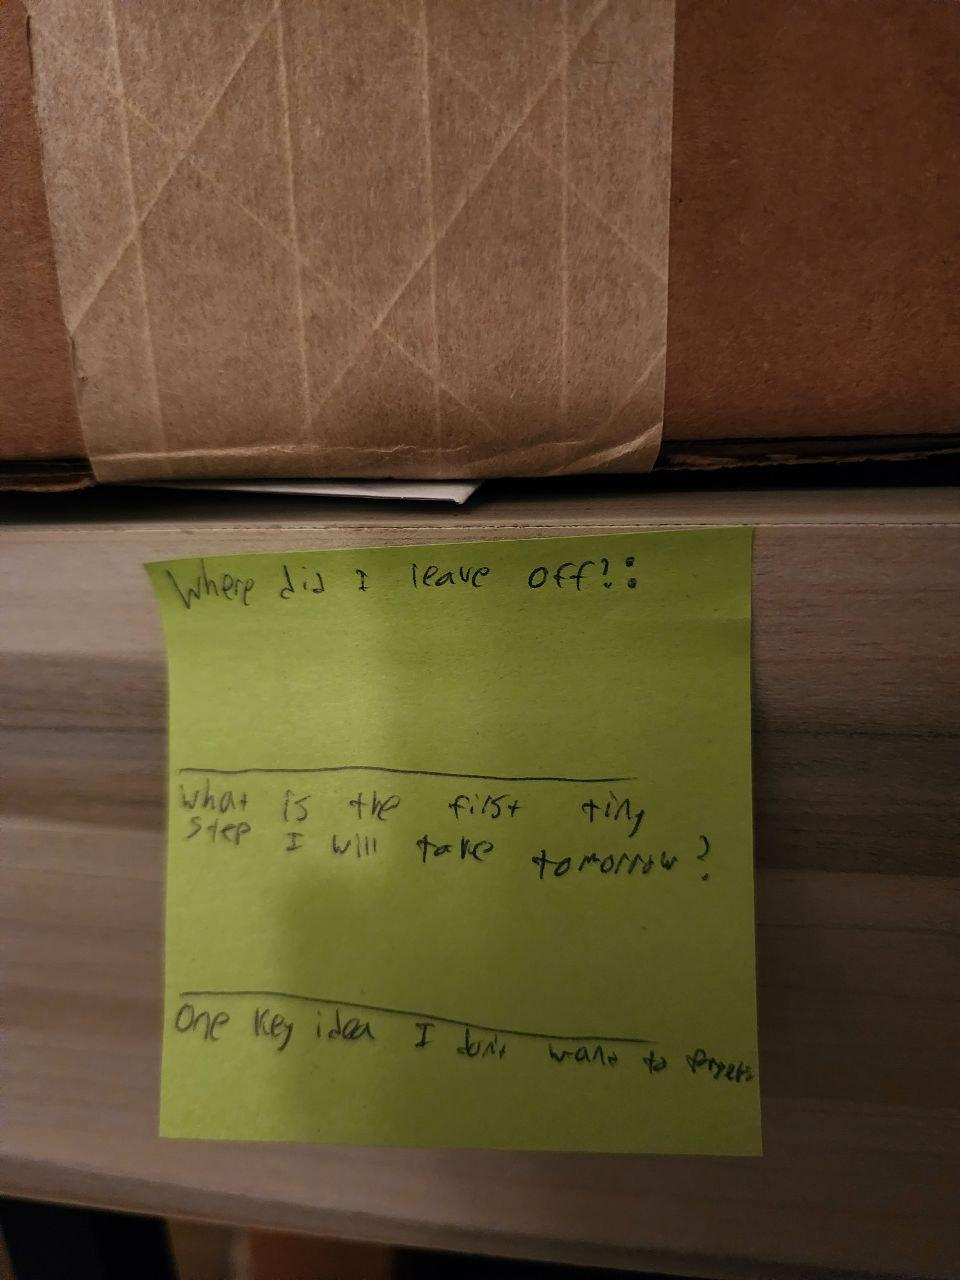 Where did I leave off?:
What is the first tiny
step I will take tomorrow?
One key idea I don't want to forget: